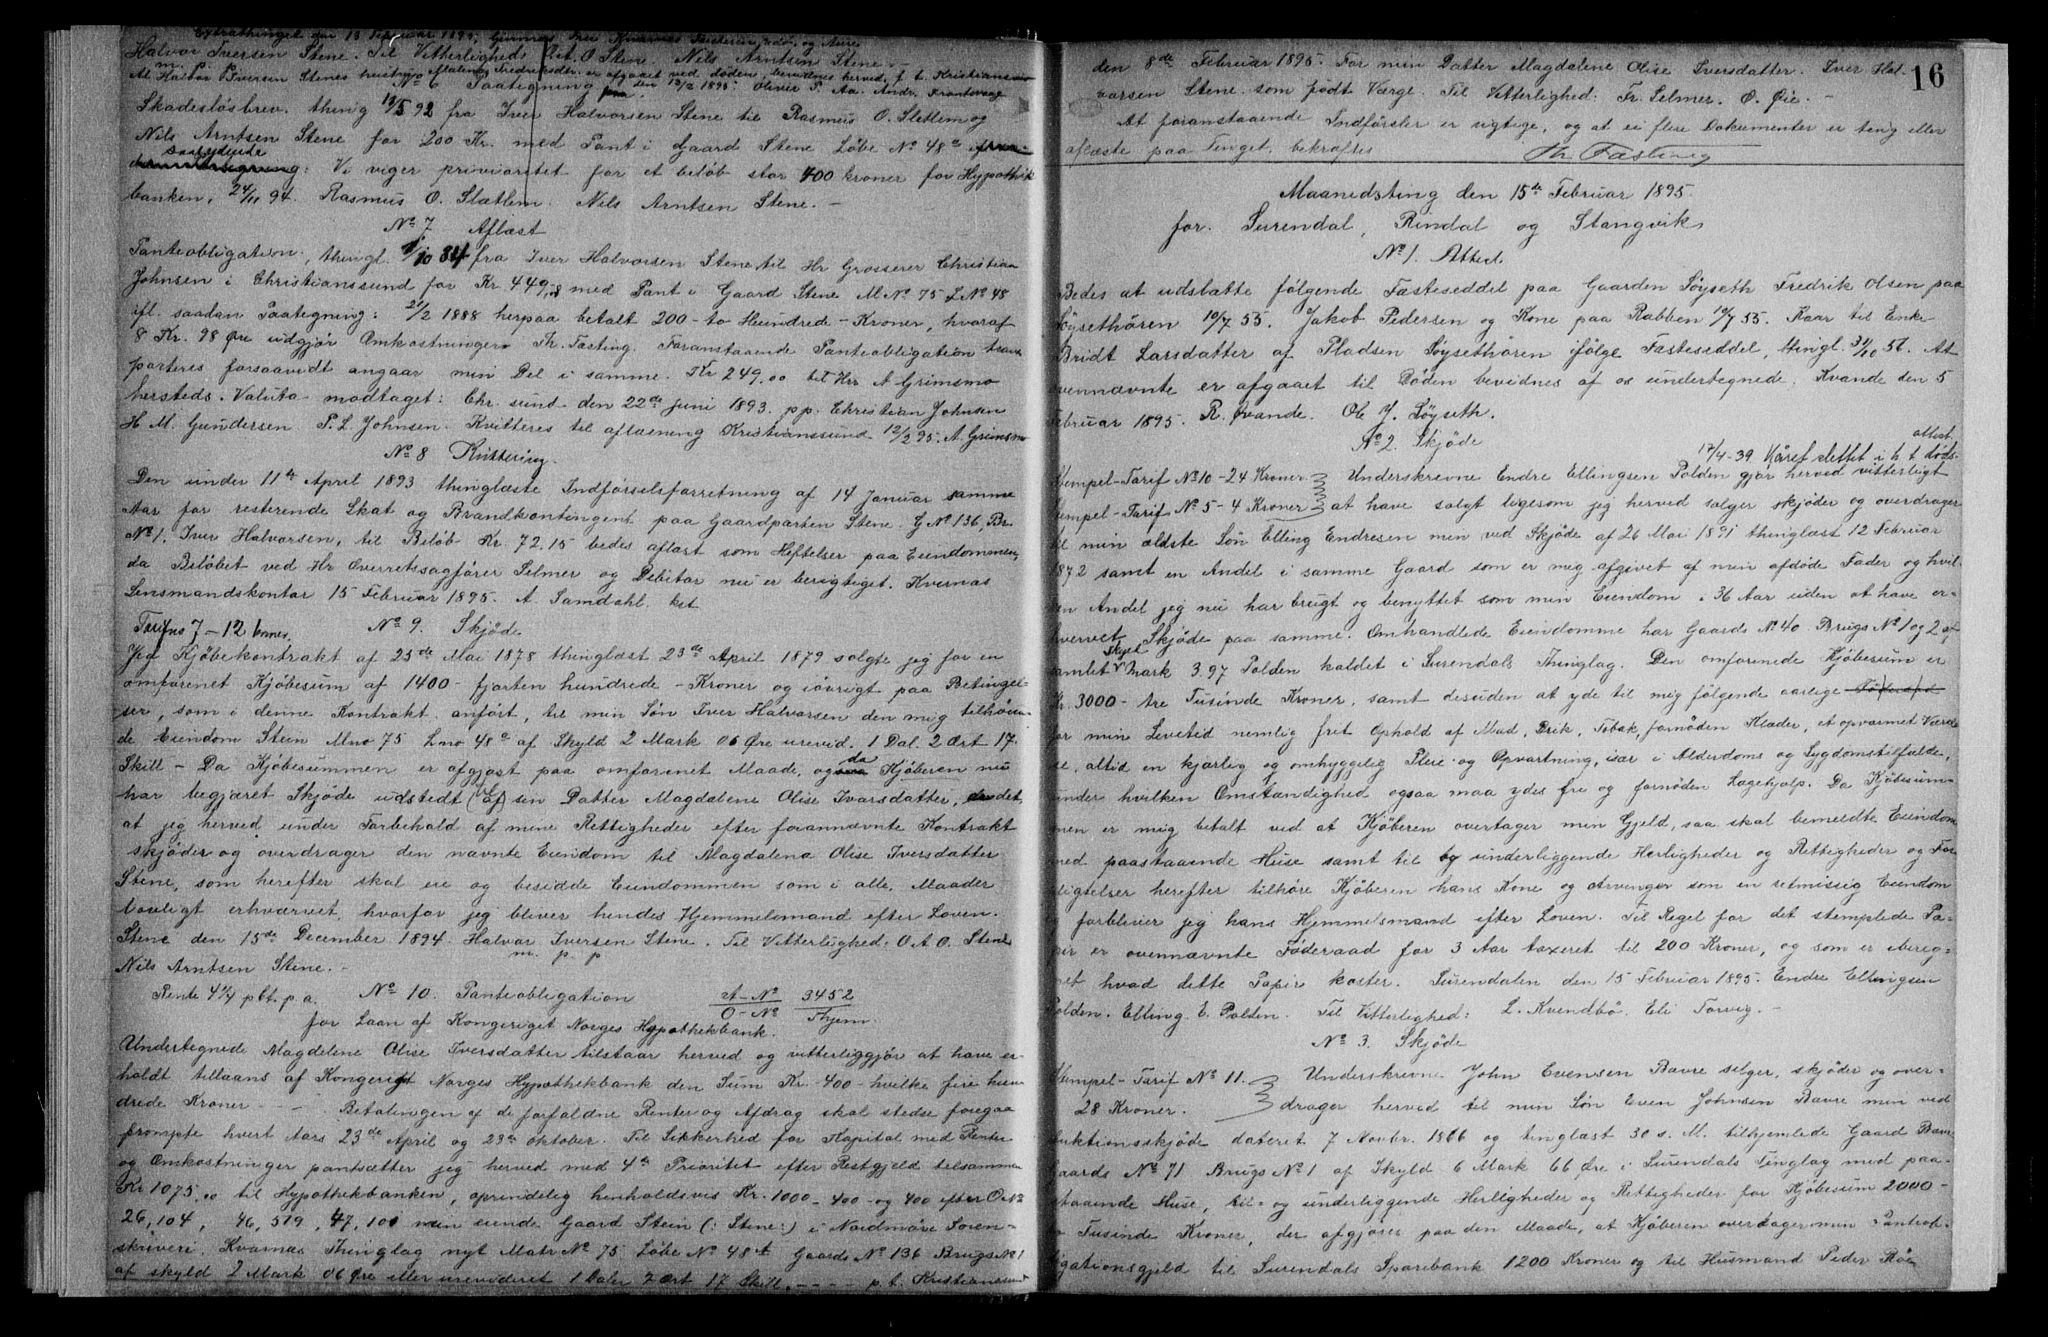 Extrathinget den 13 Februar 1895,
Halvor Iversen Stene. Til Vitterlighed: O. t. O. Stene. Nils Arntsen Stene. –
At Halvor Iversen Stenes hustru er afgaaet ved døden, bevidnes herved, p. t. Kristianssund
No 6 Paategning den 13/2 1895. Oliver
Skadesløsbrev. thingl 92 fra Iver Halvorsen Stene til Rasmus O. Sletlem og
Nils Arntsen Stene for 200 Kr. med Pant i Gaard Stene Løbe No 48a
saalydende
: Vi viger prioritet for et beløb stor 400 kroner for Hypothek
banken, 24/11 94. Rasmus O. Slætlem. Nils Arntsen Stene. –
No 7 Aflæst
Panteobligation, thingl. 1/10 84 fra Iver Halvorsen Stene til Hr Grosserer Christian
Johnsen i Christianssund for Kr 449, med Pant i Gaard Stene M No 75 L No 48
ifl. saadan Paategning: 21/2 1888 herpaa betalt 200 – to Hundrede – Kroner, hvoraf
8 Kr. 98 Øre udgjør Omkostninger. Th. Fasting. Foranstaaende Panteobligation trans
porteres forsaavidt angaar min Del i samme. Kr 249.00 til Hr A Grimsmo
hersteds. Valuta modtaget: Chr. sund den 22de juni 1893. p.p. Christian Johnsen
H. M. Gundersen P. L. Johnsen. Kvitteres til aflæsning Kristianssund 12/2 95. A. Grimsmo
No 8 Kvittering.
Den under 11te April 1893 thinglæste Indførselsforretning af 14 Januar samme
Aar for resterende Skat og Brandkontingent paa Gaardparten Stene G No 136, Br.
No 1, Iver Halvorsen, til Beløb Kr. 72.15 bedes aflæst som Heftelser paa Eiendommen,
da Beløbet ved Hr Overretssagfører Selmer og Debitor nu er berigtiget. Kvernæs
Lensmandskontor 15 Februar 1895. A. Samdahl. kst
Tarif no 7 – 12 kroner. No 9. Skjøde
Ved Kjøbekontrakt af 23de Mai 1878 thinglæst 23de April 1879 solgte jeg for en
omforenet Kjøbesum af 1400 – fjorten hundrede – Kroner og iøvrigt paa Betingel-
ser, som i denne Kontrakt anført, til min Søn Iver Halvorsen den mig tilhøren-
de Eiendom Stein Mno 75 Lno 48a af Skyld 2 Mark 06 Øre urevid. 1 Dal. 2 Ort 17
Skill – Da Kjøbesummen er afgjort paa omforenet Maade, og da Kjøberen nu
har begjæret Skjøde udstedt til sin Datter Magdalene Olise Ivarsdatter, det
at jeg herved under Forbehold af mine Rettigheder efter forannævnte Kontrakt
skjøder og overdrager den nævnte Eiendom til Magdalena Olise Iversdatter
Stene, som herefter skal eie og besidde Eiendommen som i alle Maader
lovligt erhvervet, hvorfor jeg bliver hendes Hjemmelsmand efter Loven.
Stene den 15de December 1894. Halvor Iversen Stene. Til Vitterlighed: O t O. Stene
m. p. p
Nils Arntsen Stene. –
Rente 4 1/4 pct. p. a. No 10. Panteobligation A – No 3452
O – No Thjem.
for Laan af Kongeriget Norges Hypothekbank.
Undertegnede Magdelene Olise Iversdatter tilstaar herved og vitterliggjør at have er-
holdt tillaans af Kongeriget Norges Hypothekbank den Sum Kr. 400 – hvilke fire hun
drede Kroner – – Betalingen af de forfaldne Renter og Afdrag skal stedse foregaa
prompte hvert Aars 23de April og 23de Oktober. Til Sikkerhed for Kapital med Renter
og Omkostninger pantsætter jeg herved med 4de Prioritet efter Restgjeld tilsammen
Kr 1075.00 til Hypothekbanken, oprindelig henholdsvis Kr. 1000 – 400 – og 400 efter O No
26,104, 46,519, 47,101 min eiende Gaard Stein (: Stene:) i Nordmøre Soren-
skriveri. Kvernæs Thinglag nyt Matr No 75 Løbe No 48a Gaards No 136 Brugs No 1
af skyld 2 Mark 06 Øre eller urevideret 1 Daler 2 Ort 17 Skill. – – – – p. t. Kristianssund
16
den 8de Februar 1895. For min Datter Magdalene Olise Iversdatter. Iver Hal-
varsen Stene som født Værge. Til Vitterlighed: Fr. Selmer. O. Øie. –
At foranstaaende Indførsler er rigtige, og at ei flere Dokumenter er tingl eller
aflæste paa Tinget, bekræftes Th. Fasting
Maanedsting den 15de Februar 1895
for Surendal, Rindal og Stangvik
No 1. Attest
Bedes at udslætte følgende Fæsteseddel paa Gaarden Søyseth Fredrik Olsen paa
Søysethøren 10/7 55. Jakob Pedersen og Kone paa Rabben 10/7 55. Kaar til Enke
Bridt Larsdatter af Pladsen Søysethøren ifølge Fæsteseddel, thingl. 30/10 56. At
ovennævnte er afgaaet til Døden bevidnes af os undertegnede. Kvande den 5
Februar 1895. R. Qvande. Ole J. Søyseth.
No 2. Skjøde 17/4 - 39 Kåret slettet i h t døds-
attest.
Stempel-Tarif No 10 – 24 Kroner. Underskrevne Endre Ellingsen Polden gjør herved vitterligt
Stempel-Tarif No 5 – 4 Kroner at have solgt ligesom jeg herved sælger skjøder og overdrager
til min ældste Søn Elling Endresen min ved Skjøde af 26 Mai 1871 thinglæst 12 Februar
1872 samt en Andel i samme Gaard som er mig afgivet af min afdøde Fader og hvil-
ken Andel jeg nu har brugt og benyttet som min Eiendom i 36 Aar uden at have er-
hvervet Skjøde paa samme. Omhandlede Eiendomme har Gaards No 40 Brugs No 1 og 2 af
samlet Skyld Mark 3.97 Polden kaldet i Surendals Thinglag. Den omforenede Kjøbesum er
Kr. 3000 – tre Tusinde Kroner, samt desuden at yde til mig følgende aarlige
for min Levetid nemlig frit Ophold af Mad, Drik, Tobak, fornøden Klæder, et opvarmet Værel
se, altid en kjærlig og omhyggelig Pleie og Opvartning, især i Alderdoms og Sygdomstilfælde,
under hvilken Omstændighed ogsaa maa ydes fri og fornøden Lægehjælp. Da Kjøbesum-
men er mig betalt ved at Kjøberen overtager min Gjeld, saa skal bemeldte Eiendom
med paastaaende Huse samt til og underliggende Herligheder og Rettigheder og For
pligtelser herefter tilhøre Kjøberen hans Kone og Arvinger som en retmæssig Eiendom
og forbliver jeg hans Hjemmelsmand efter Loven. Til Regel for det stemplede Pa-
pir er ovennævnte Føderaad for 3 Aar taxeret til 200 Kroner, og som er ibereg-
net hvad dette Papir koster. Surendalen den 15 Februar 1895. Endre Ellingsen
Polden. Elling. E. Polden. Til Vitterlighed: L. Kvendbø. Eli Torvig. –
No 3. Skjøde
Stempel-Tarif No 11. Underskrevne John Evensen Bævre sælger, skjøder og over-
28 Kroner. drager herved til min Søn Even Johnsen Bævre min ved
Auktionsskjøde dateret 7 Novbr. 1866 og tinglæst 30 s. M. tilhjemlede Gaard Bævre
Gaards No 71 Brugs No 1 af Skyld 6 Mark 66 Øre i Surendals Tinglag med paa-
staaende Huse, til- og underliggende Herligheder og Rettigheder for Kjøbesum 2000 –
to Tusinde Kroner, der afgjøres paa den Maade, at Kjøberen overtager min Panteob-
ligationsgjeld til Surendals Sparebank 1200 Kroner og til Husmand Peder Røe